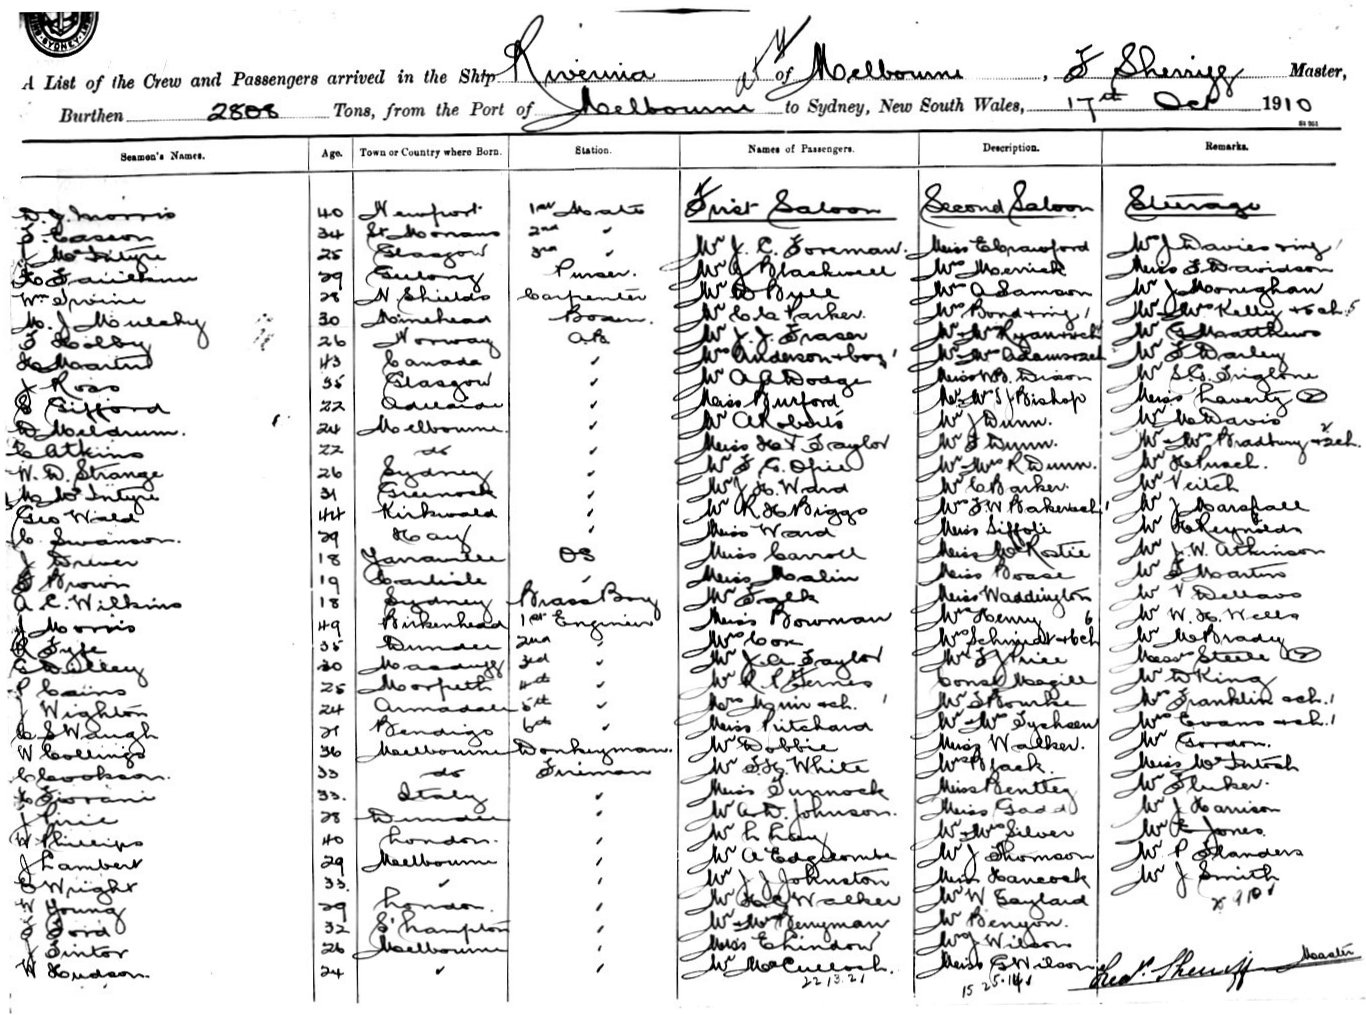 SYDNEY
A List of the Crew and Passengers arrived in the Ship Riverina of Melbourne, F Sherriff Master,
Burthen 2808 Tons, from the Port of Melbourne to Sydney, New South Wales, 17th Oct 1910
Seamen's Names. Age. Town or Country where Born. Station. Names of Passengers. Description. Remarks.
D. J. Morris 40 Newport 1st Mate First Saloon Second Saloon Steerage
Casson 34 St Monans 2nd "
J McIntyre 25 Glasgow 3rd " Mr J. C. Foreman. Miss E Crawford Mr J Davies
29 Geelong Purser. Mr J Blackwell Mrs Merrick Miss F Davidson
Wm Irvine 28 N Shields Carpenter Mr Bull Mrs A Samson Mr J Moneghan
M. J Mulchy 30 Minehead Bosun. Mr C Parker. Mrs Bond Mr & Mrs Kelly
Holby 26 Norway A.B. Mr J. J. Fraser Mr & Mrs Ryan Mr G Matthews
H Martin 43 Canada " Mrs Anderson & boy Mr & Mrs Adams Mr F Darley
J Ross 35 Glasgow " Mr A A Dodge Miss Dixon Mr S. G. Triglone
Gifford 22 Adelaide " Miss Burford Mr & Mrs J Bishop Miss Laverty 2
D Meldrum. 24 Melbourne. " Mr A Roberts Mr J Dunn. Mr Davis
C Atkins 22 do " Miss Taylor Mr F Dunn. Mr & Mrs Bradbury & 2 ch.
W. D. Strange 26 Sydney " Mr F. G. Spice Mr & Mrs R Dunn. Mr H Pusch.
M McIntyre 31 Greenock " Mr J. H. Ward Mr C Barker. Mr Veitch
Geo Wald 44 Kirkwald " Mr R H Biggs Mrs F W Baker & ch Mr J Marshall
C. Swanson. 29 Hay " Miss Ward Miss Mr H Reynolds
J Drever 18 OS Miss Carroll Miss McRostie Mr J. W. Atkinson
Brown 19 Carlisle " Miss Malin Miss Boase Mr F Martin
A. C. Wilkins 18 Sydney Brass Boy Mr Falk Miss Waddington Mr V Dellavo
J Morris 49 Birkenhead 1st Engineer Miss Bowman Mrs Henry 6 Mr W. H. Wells
R Fyfe 35 Dundee 2nd " Mrs Cox Mrs Schmidt & 6 ch Mr McBrady
30 3rd " Mr J. A. Taylor Mr F J Price Steele 2
P Cains 25 Morpeth 4th " Mr R P Const Magill Mr D King
J Wighton 24 Armadale 5th " Mrs Muir & ch. 1 Mr Bourke Mrs Franklin & ch. 1
C S Waugh 21 Bendigo 6th " Miss Pritchard Mr & Mrs Tychsen Mrs Evans & ch. 1
W Collings 36 Melbourne Donkeyman. Mr Dobbie Miss Walker. Mr Gordon.
C Cookson. 33 do Fireman Mr F. H. White Mrs B Jack. Miss McIntosh
33. Italy " Miss Tunnock Miss Bentley Mr Fluker.
J Pirie 28 Dundee " Mr A. D. Johnson. Miss Gadd Mr J Harrison
W Phillips 40 London. " Mr L Lay Mr & Mrs Silver Mr E Jones.
J Lambert 29 Melbourne " Mr A Edgecombe Mr J Thomson Mr P Flanders
Wright 33. " " Mr J J Johnston Miss Hancock Mr J Smith
Young 29 London. " Mr H G Walker Mr W Gaylard
Ford 32 S'hampton " Mr & Mrs Berryman Mr Benyon.
J Tintor 26 Melbourne " Miss E Lindon Mr J Wilson
W Hudson. 24 " " Mr McCulloch. Miss G Wilson Fredk. Sherriff Master
22.13.21 15.25.14